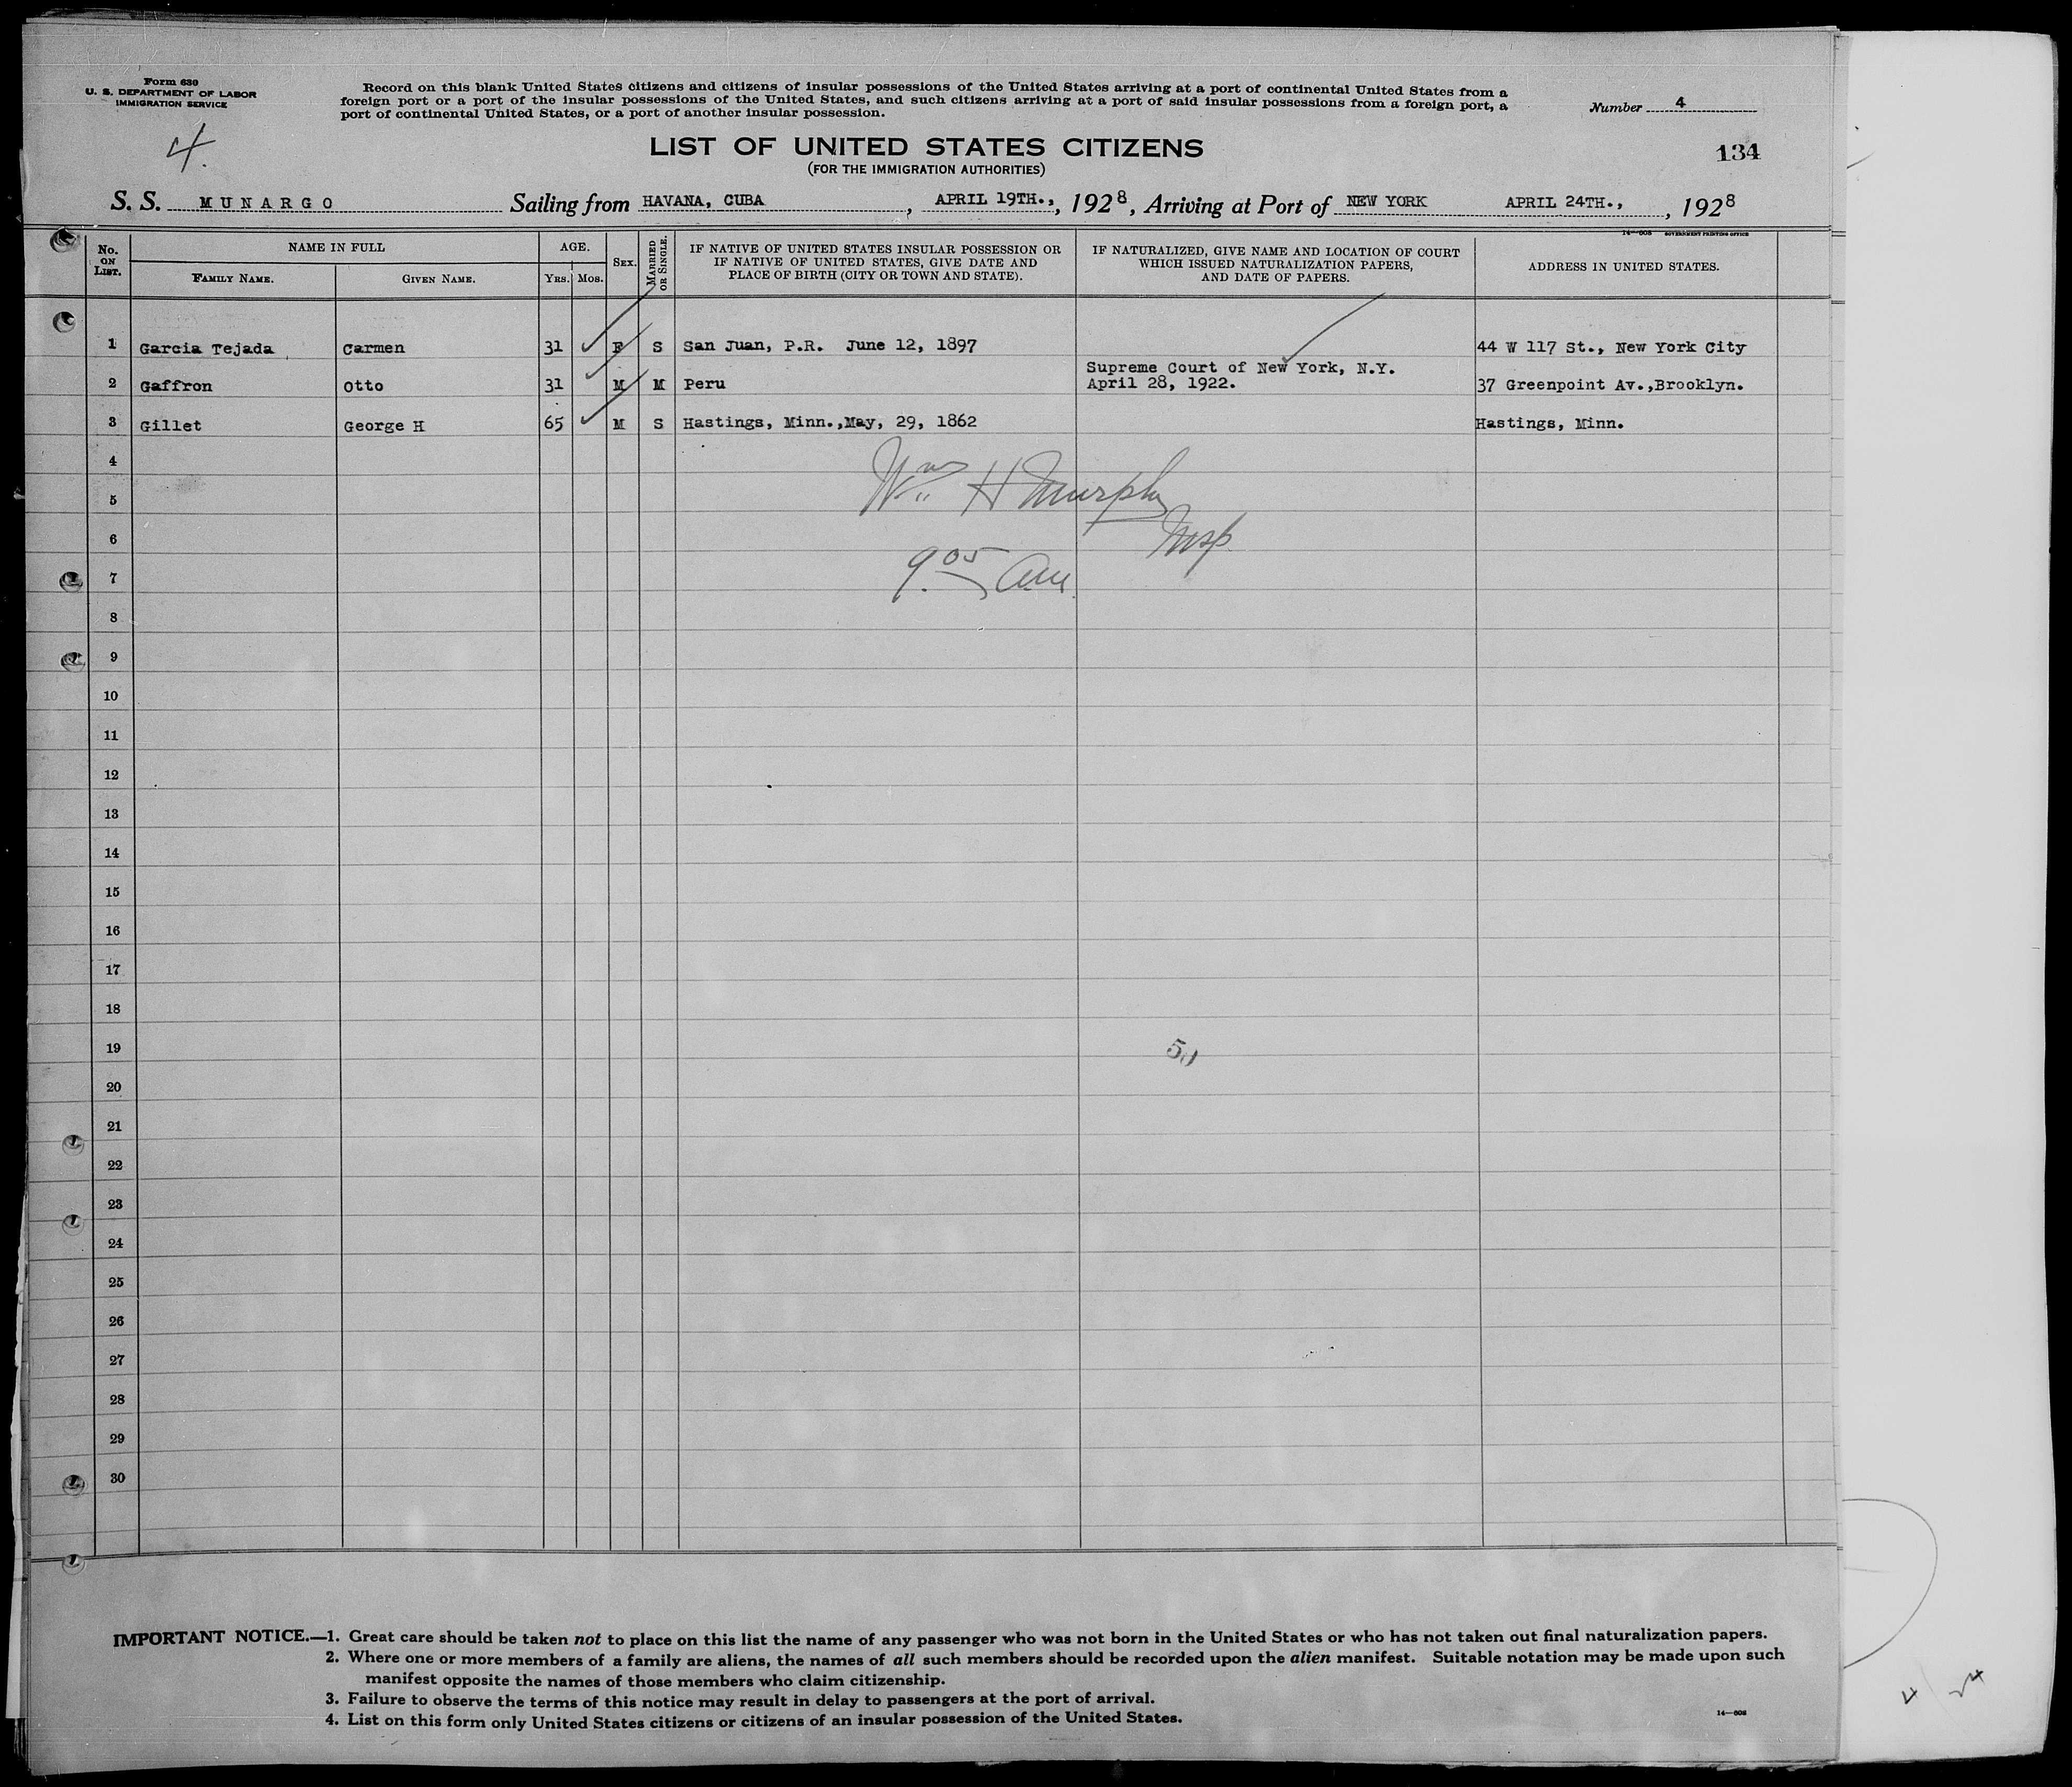 Form 630
U. S. DEPARTMENT OF LABOR
IMMIGRATION SERVICE
Record on this blank United States citizens and citizens of insular possessions of the United States arriving at a port of continental United States from a
foreign port or a port of the insular possessions of the United States, and such citizens arriving at a port of said insular possessions from a foreign port, a
port of continental United States, or a port of another insular possession.
Number 4
4.
LIST OF UNITED STATES CITIZENS
(FOR THE IMMIGRATION AUTHORITIES)
134
S. S. MUNARGO Sailing from HAVANA, CUBA, APRIL 19TH., 1928, Arriving at Port of NEW YORK APRIL 24TH., 1928
14—608 GOVERNMENT PRINTING OFFICE
No. ON LIST.
NAME IN FULL
FAMILY NAME. GIVEN NAME.
AGE.
YRS. MOS.
SEX.
MARRIED OR SINGLE.
IF NATIVE OF UNITED STATES INSULAR POSSESSION OR
IF NATIVE OF UNITED STATES, GIVE DATE AND
PLACE OF BIRTH (CITY OR TOWN AND STATE).
IF NATURALIZED, GIVE NAME AND LOCATION OF COURT
WHICH ISSUED NATURALIZATION PAPERS,
AND DATE OF PAPERS.
ADDRESS IN UNITED STATES.
1 Garcia Tejada Carmen 31 F S San Juan, P.R. June 12, 1897 44 W 117 St., New York City
2 Gaffron Otto 31 M M Peru Supreme Court of New York, N.Y.
April 28, 1922. 37 Greenpoint Av.,Brooklyn.
3 Gillet George H 65 M S Hastings, Minn.,May, 29, 1862 Hastings, Minn.
4
Wm H Murphy
5
Insp
6
9.05 am
7
8
9
10
11
12
13
14
15
16
17
18
19
50
20
21
22
23
24
25
26
27
28
29
30
IMPORTANT NOTICE.—1. Great care should be taken not to place on this list the name of any passenger who was not born in the United States or who has not taken out final naturalization papers.
2. Where one or more members of a family are aliens, the names of all such members should be recorded upon the alien manifest. Suitable notation may be made upon such
manifest opposite the names of those members who claim citizenship.
3. Failure to observe the terms of this notice may result in delay to passengers at the port of arrival.
4. List on this form only United States citizens or citizens of an insular possession of the United States.
14—608